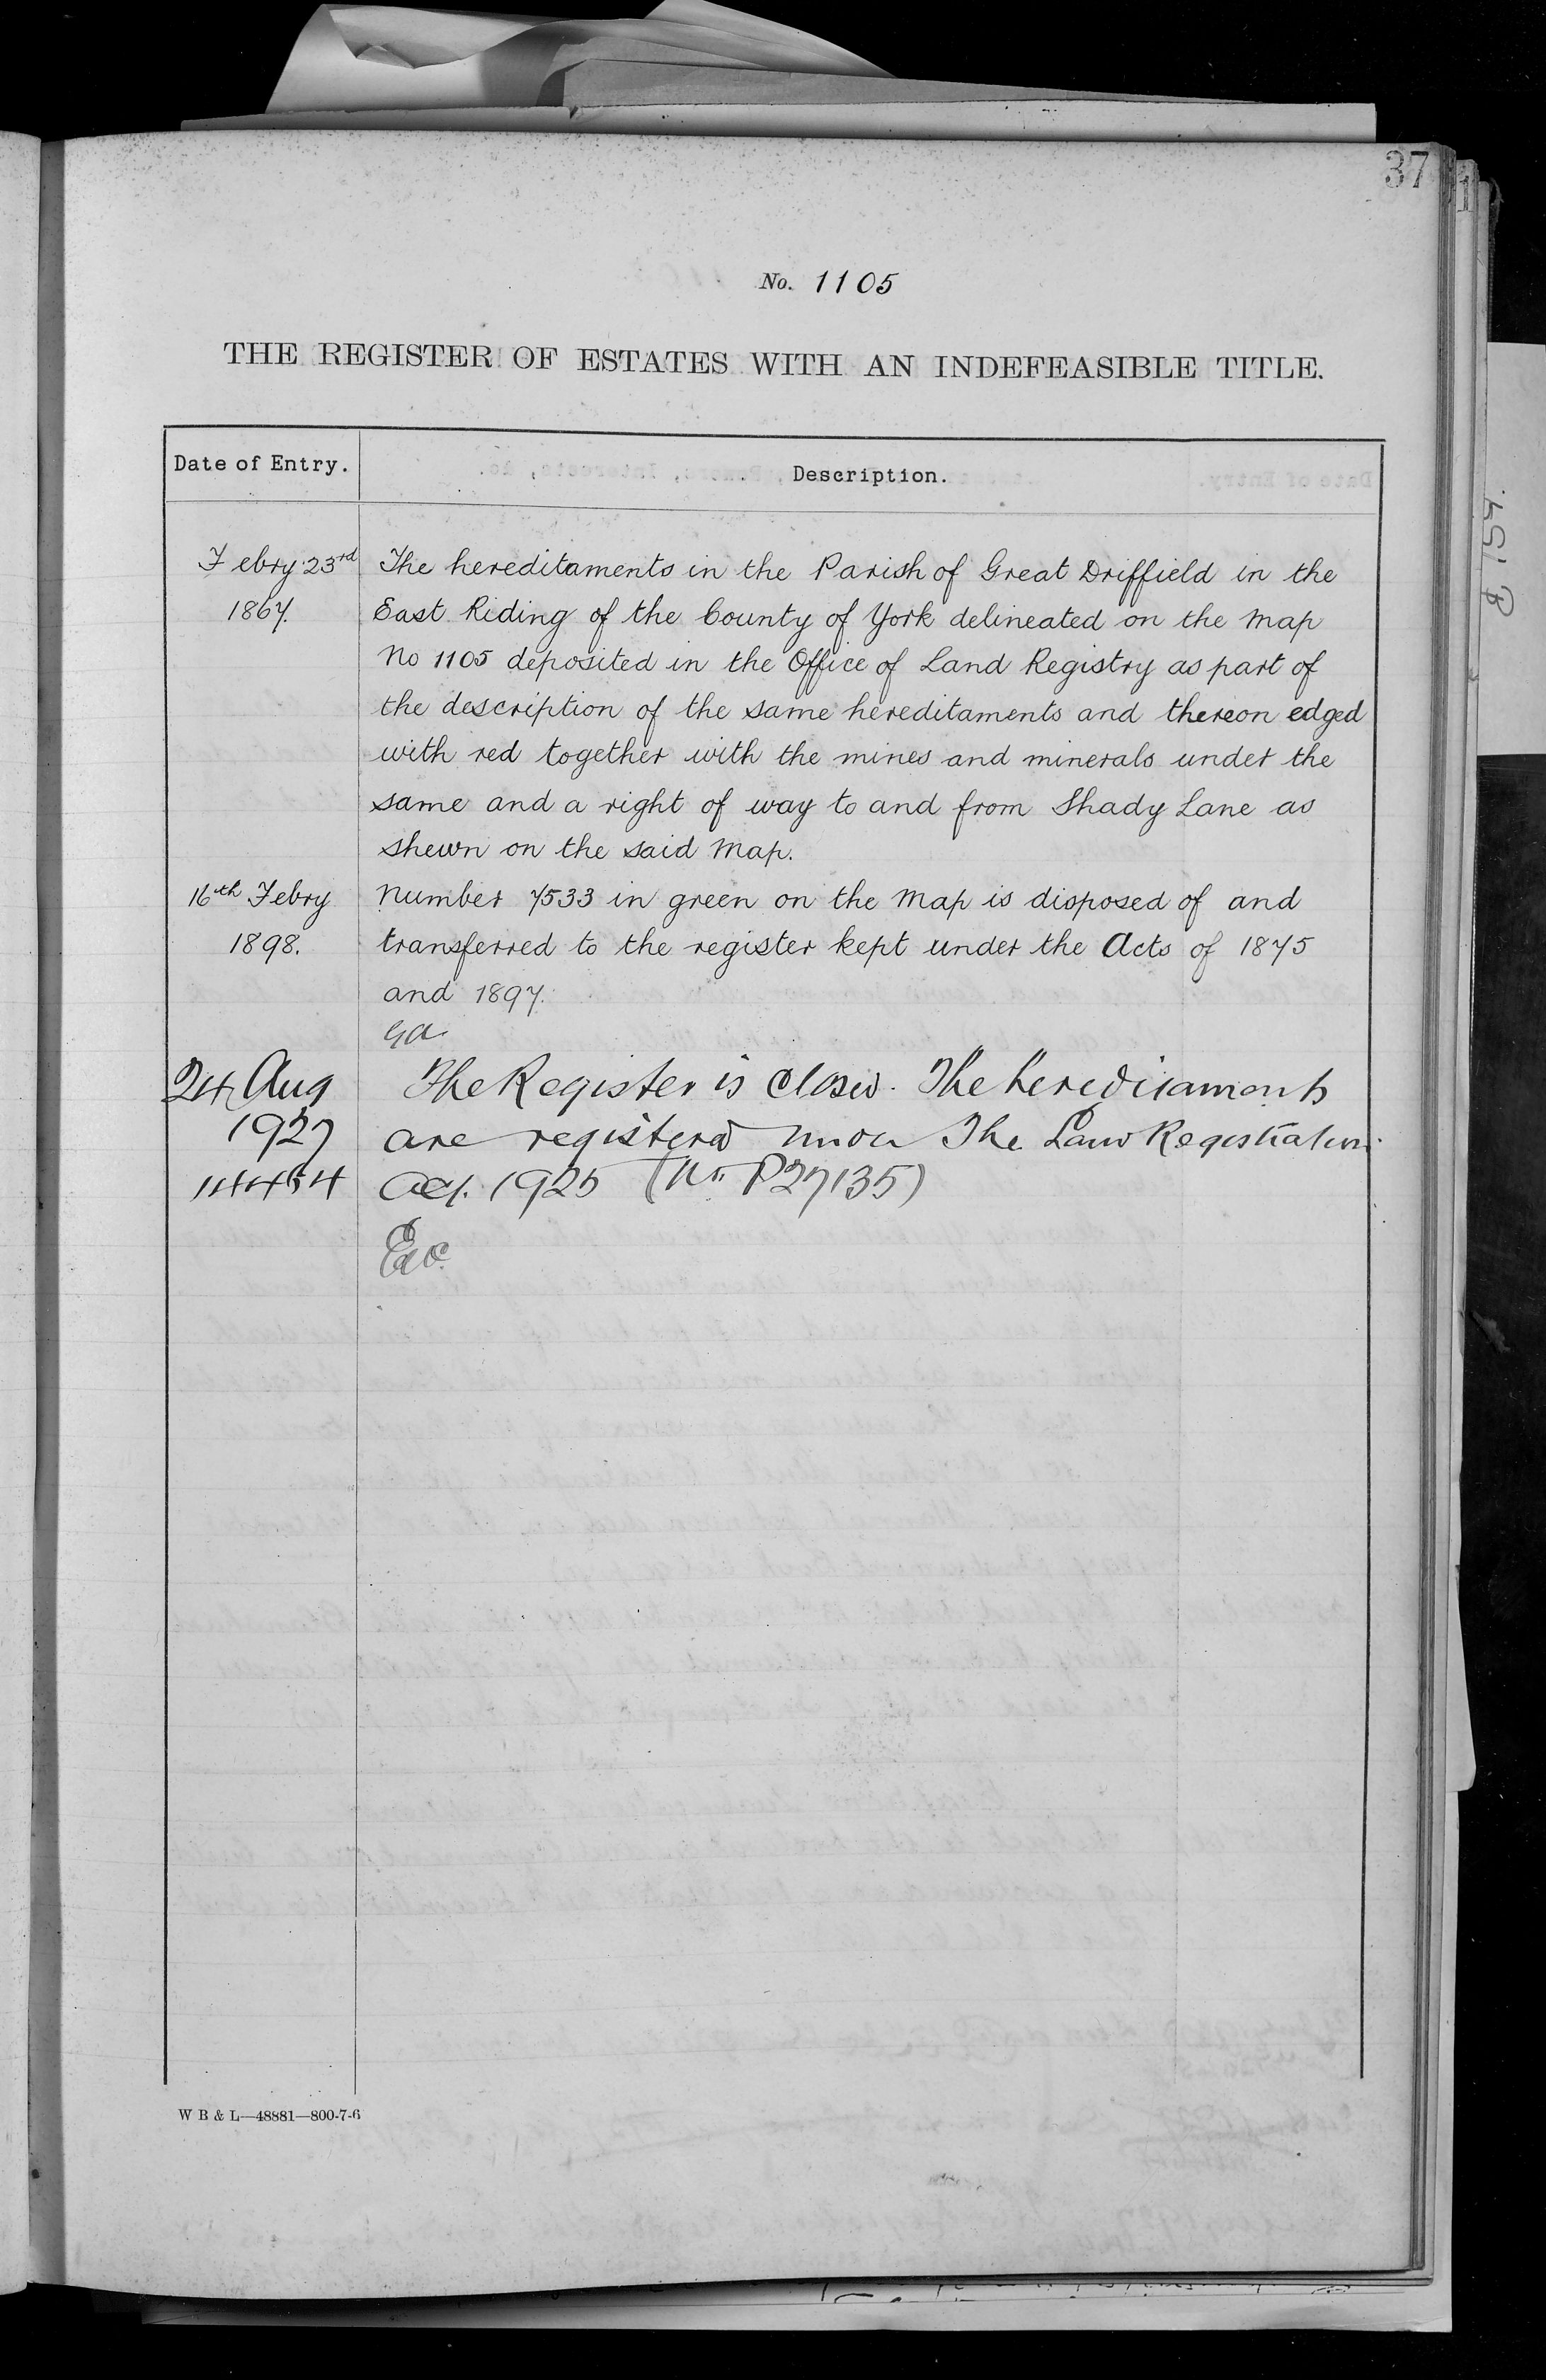 37
No. 1105
THE REGISTER OF ESTATES WITH AN INDEFEASIBLE TITLE.
Date of Entry.
Description.
Febry 23rd
1867.
The hereditaments in the Parish of Great Driffield in the
East Riding of the County of York delineated on the Map
No 1105 deposited in the Office of Land Registry as part of
the description of the same hereditaments and thereon edged
with red together with the mines and minerals under the
same and a right of way to and from Shady Lane as
shewn on the said Map.
16th Febry
1898.
Number 7533 in green on the Map is disposed of and
transferred to the register kept under the Acts of 1875
and 1897.
GA
24 Aug
1927
14454
The Register is closed. The hereditaments
are registered under The Land Registration
Act. 1925 (No P27135)
W B & L—48881—800-7-6